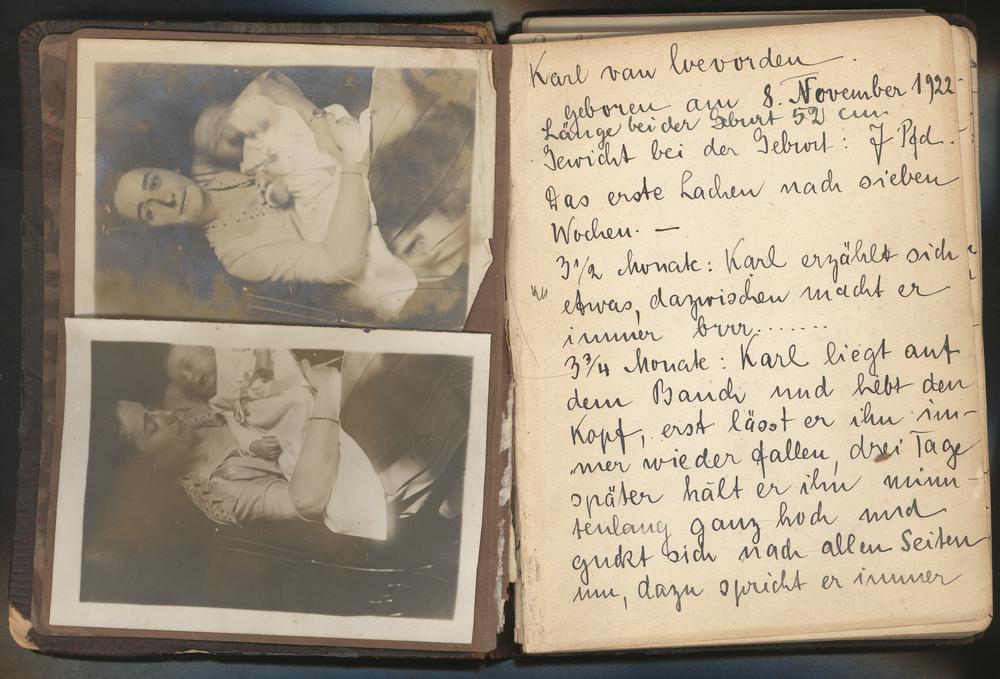 Karl van Coevorden.
geboren am 8. November 1922
Länge bei der Geburt 52 cm
Gewicht bei der Geburt: 7 Pfd.
Das erste Lachen nach sieben
Wochen. —
3 1/2 Monate: Karl erzählt sich
etwas, dazwischen macht er
immer brrr.......
3 3/4 Monate: Karl liegt auf
dem Bauch und hebt den
Kopf, erst lässt er ihn im-
mer wieder fallen, drei Tage
später hält er ihn minu-
tenlang ganz hoch und
guckt sich nach allen Seiten
um, dazu spricht er immer